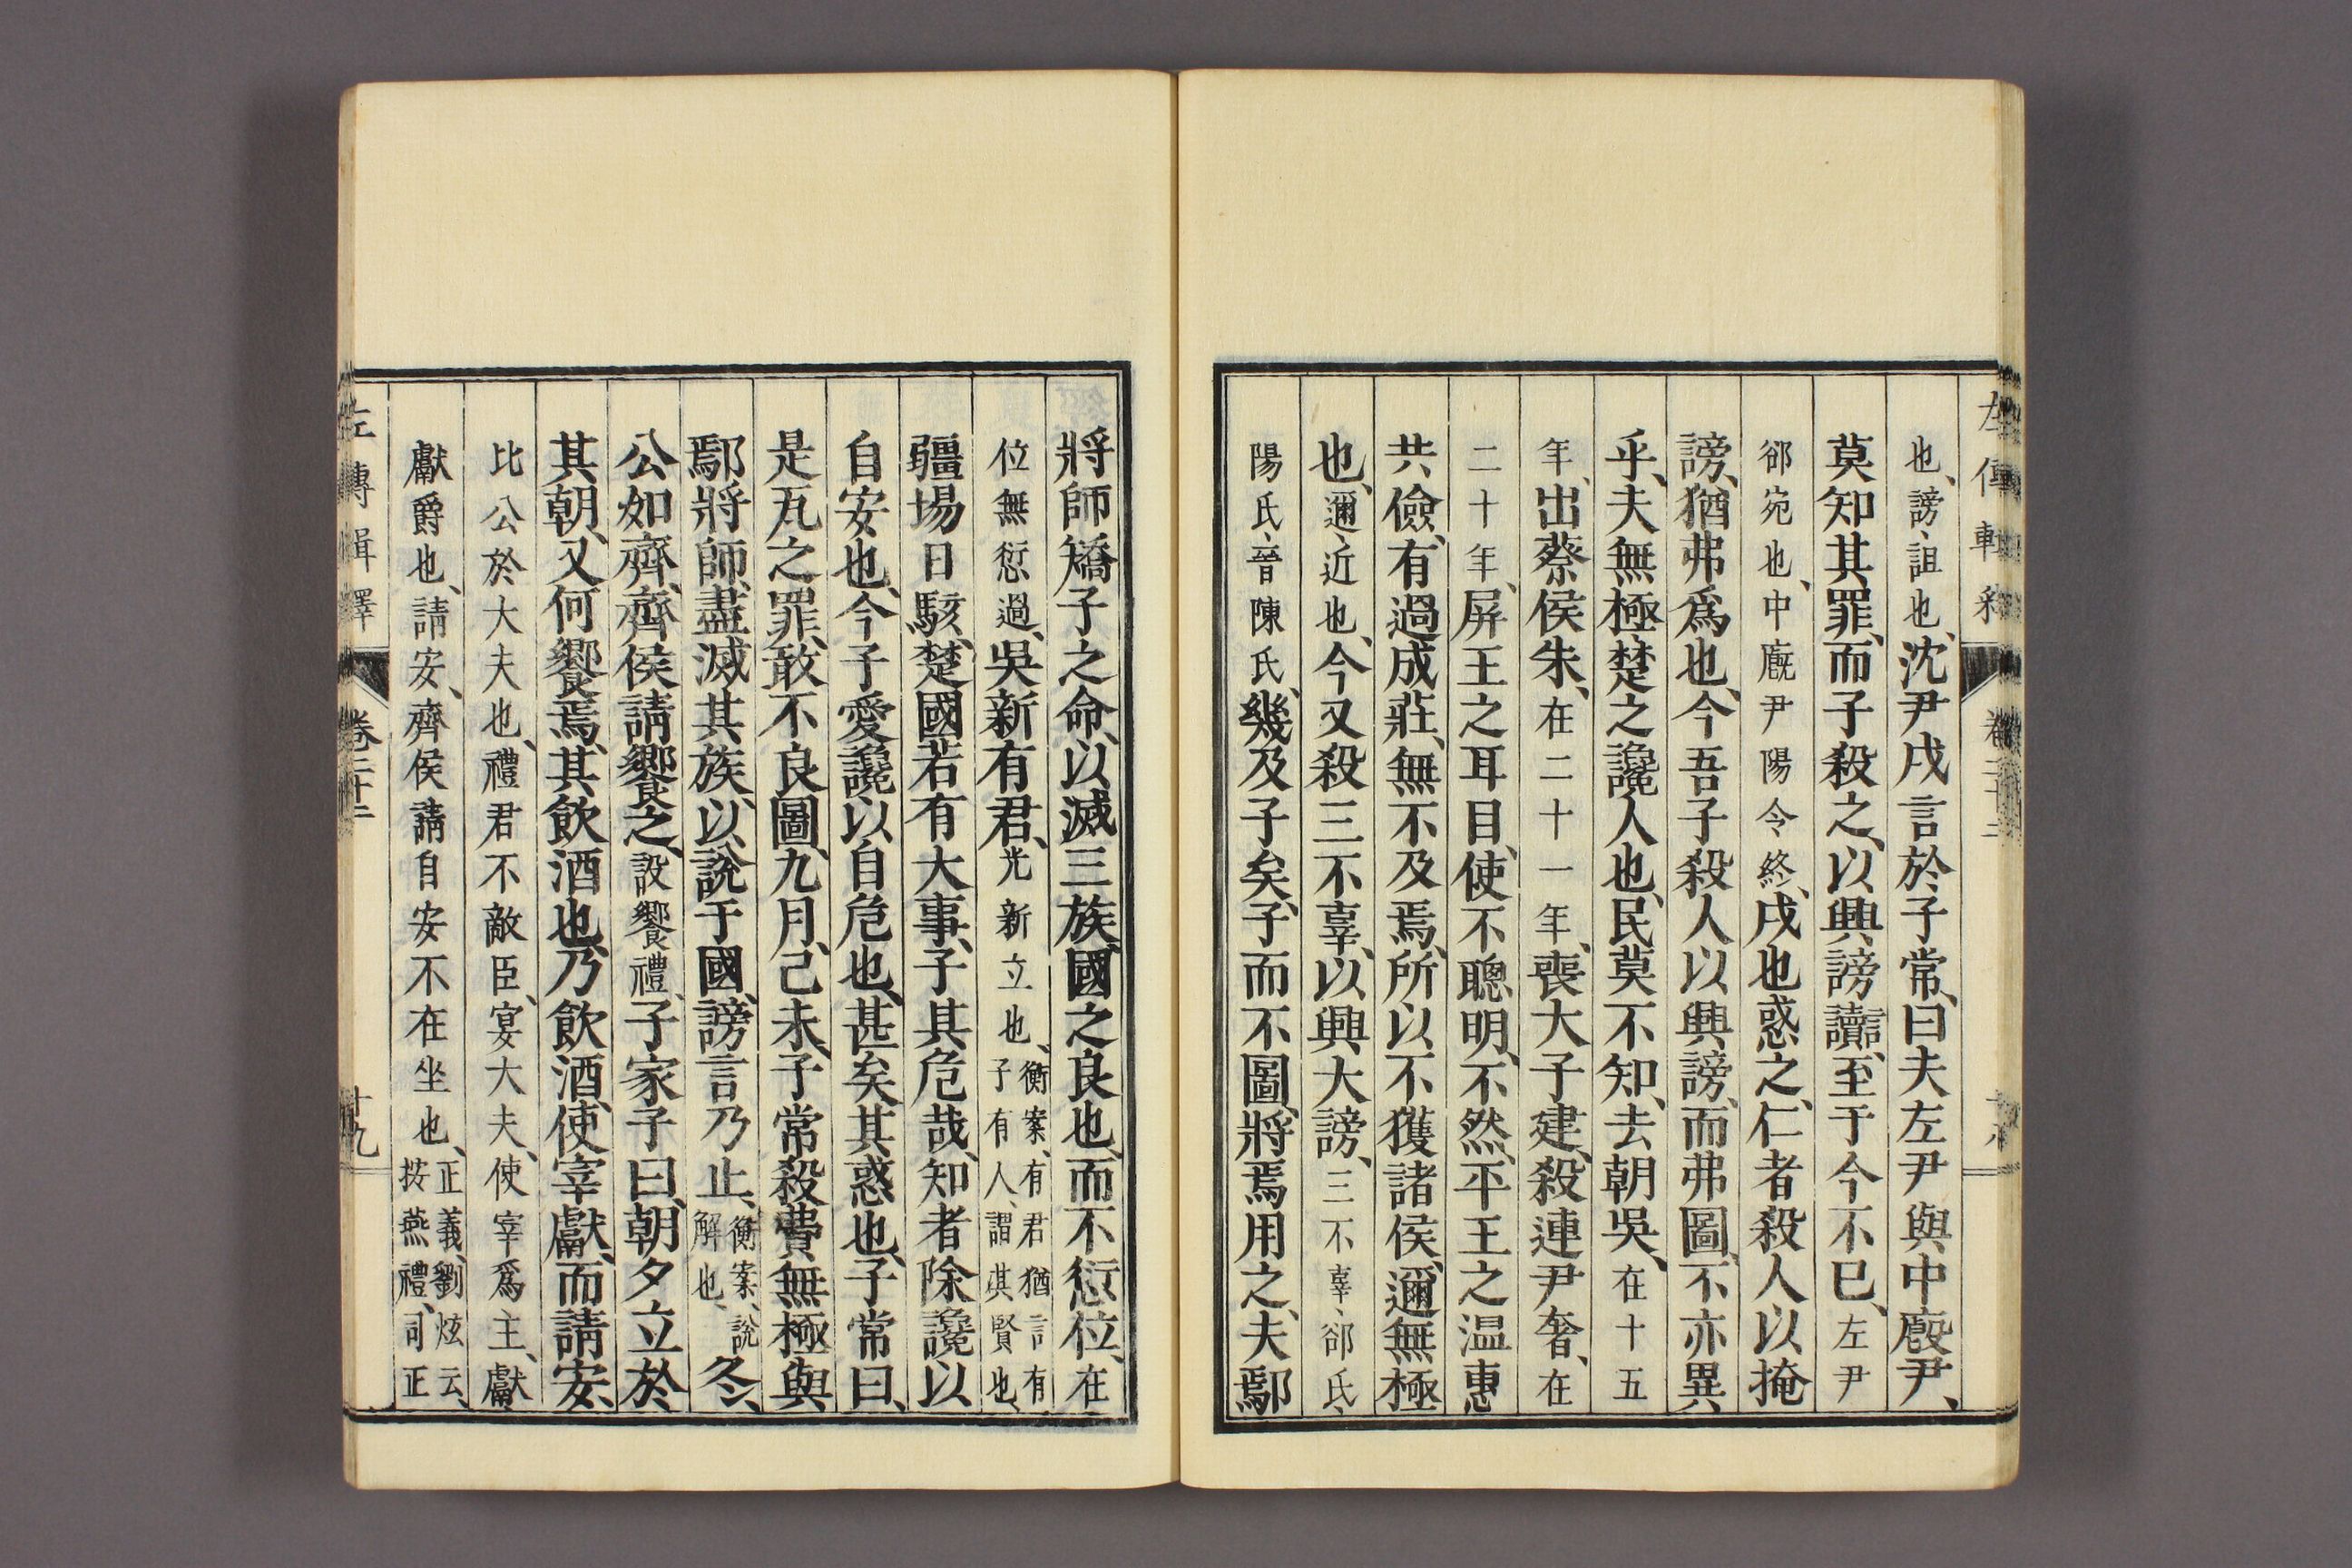 也、謗、詛也、沈尹戌言於子常、曰夫左尹與中廏尹、
莫知其罪、而子殺之、以興謗讟、至于今不已、左尹
郤宛也、中廐尹陽令終、戌也惑之、仁者殺人以掩
謗、猶弗爲也、今吾子殺人以興謗、而弗圖、不亦異
乎、夫無極楚之讒人也、民莫不知、去朝吳、在十五
年、出蔡侯朱、在二十一年、喪大子建、殺連尹奢、在
二十年、屏王之耳目、使不聰明、不然、平王之温惠
共儉、有過成莊、無不及焉、所以不獲諸侯、邇無極
也、邇、近也、今又殺三不辜、以興大謗、三不辜、郤氏、
陽氏、晉陳氏、幾及子矣、子而不圖、將焉用之、夫鄢
將師矯子之命、以滅三族、國之良也、而不愆位、在
位無愆過、吳新有君、光新立也、衡案、有君猶言有
子有人、謂其賢也、
疆埸日駭、楚國若有大事、子其危哉、知者除讒以
自安也、今子愛讒以自危也、甚矣其惑也、子常曰、
是瓦之罪、敢不良圖、九月、己未、子常殺費無極與
鄢將師、盡滅其族、以說于國、謗言乃止、衡案、說
解也、冬、
公如齊、齊侯請饗之、設饗禮、子家子曰、朝夕立於
其朝、又何饗焉、其飮酒也、乃飮酒、使宰獻、而請安、
比公於大夫也、禮君不敵臣、宴大夫、使宰爲主、獻、
獻爵也、請安、齊侯請自安不在坐也、正義、劉炫云、
按燕禮、司正
左傳輯釋
卷二十二
十九